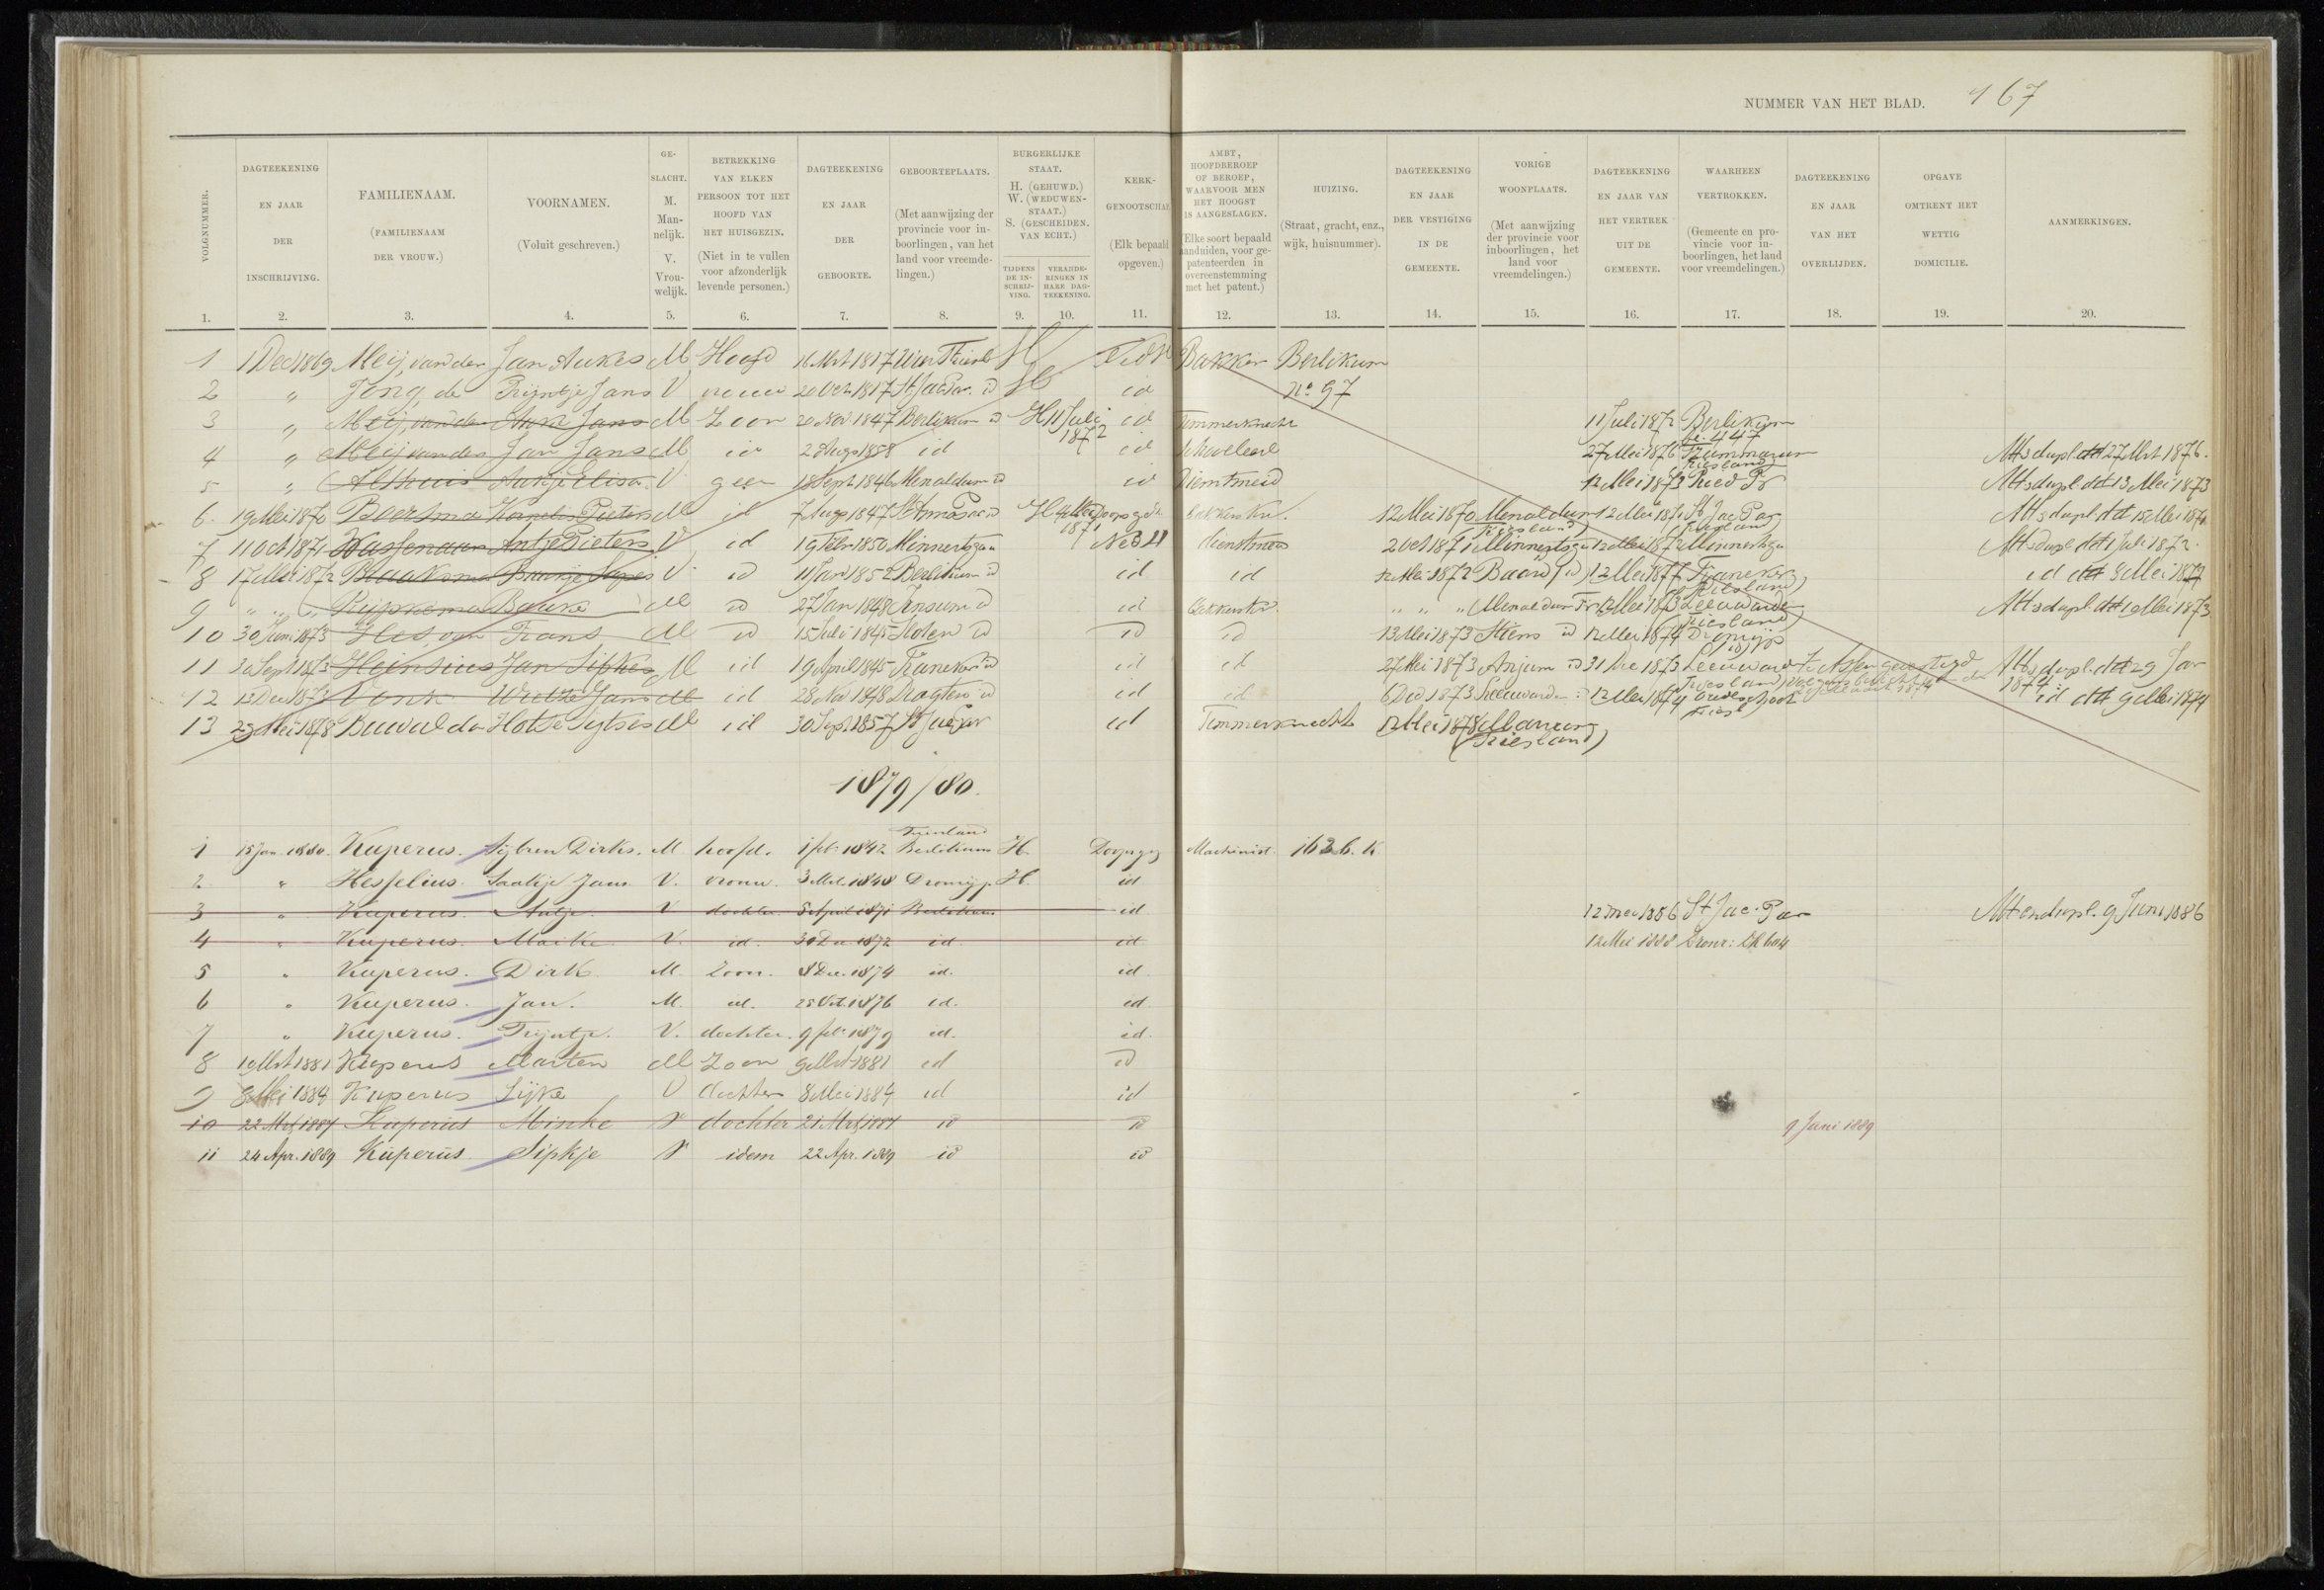 NUMMER VAN HET BLAD. 167
VOLGNUMMER. DAGTEEKENING EN JAAR DER INSCHRIJVING. FAMILIENAAM. (FAMILIENAAM DER VROUW.) VOORNAMEN. (Voluit geschreven.) GE-SLACHT. M. Man-nelijk. V. Vrou-welijk. BETREKKING VAN ELKEN PERSOON TOT HET HOOFD VAN HET HUISGEZIN. (Niet in te vullen voor afzonderlijk levende personen.) DAGTEEKENING EN JAAR DER GEBOORTE. GEBOORTEPLAATS. (Met aanwijzing der provincie voor in-boorlingen, van het land voor vreemde-lingen.) BURGERLIJKE STAAT. H. (GEHUWD.) W. (WEDUWEN-STAAT.) S. (GESCHEIDEN. VAN ECHT.) TIJDENS DE IN-SCHRIJ-VING. VERANDE-RINGEN IN HARE DAG-TEEKENING. KERK-GENOOTSCHAP (Elk bepaald opgeven.) AMBT, HOOFDBEROEP OF BEROEP, WAARVOOR MEN HET HOOGST IS AANGESLAGEN. (Elke soort bepaald aanduiden, voor ge-patenteerden in overeenstemming met het patent.) HUIZING. (Straat, gracht, enz., wijk, huisnummer). DAGTEEKENING EN JAAR DER VESTIGING IN DE GEMEENTE. VORIGE WOONPLAATS. (Met aanwijzing der provincie voor inboorlingen, het land voor vreemdelingen.) DAGTEEKENING EN JAAR VAN HET VERTREK UIT DE GEMEENTE. WAARHEEN VERTROKKEN. (Gemeente en pro-vincie voor in-boorlingen, het land voor vreemdelingen.) DAGTEEKENING EN JAAR VAN HET OVERLIJDEN. OPGAVE OMTRENT HET WETTIG DOMICILIE. AANMERKINGEN.
1. 2. 3. 4. 5. 6. 7. 8. 9. 10. 11. 12. 13. 14. 15. 16. 17. 18. 19. 20.
1 1 Dec 1869 Meij, van der Jan Aukes M Hoofd 16 Mrt 1817 H Bakker Berlikum
2 " Jong, de Trijntje Jans V vrouw 20 Oct 1817 St Jac Par. id H id No 97
3 " Meij, van der Auke Jans M Zoon 20 Nov 1847 Berlikum id H 11 Juli 1872 id Timmerknecht 11 Juli 1872 Berlikum 447
4 " Meij van der Jan Jans M id 2 Augs 1858 id id 27 Mei 1876 Tzummarum (Friesland) Atts dupl. dd 27 Mrt 1876.
5 " Althuis Antje Elisa. V geen 18 Sept 1846 Menaldum id id Dienstmeid 12 Mei 1873 Ried Fr Atts dupl. dd 13 Mei 1873
6. 19 Mei 1870 Boersma Kornelis Pieters M id 7 Augs 1847 St Anna Par id H Mei 1871 Doopsgez Bakkerskn. 12 Mei 1870 Menaldum (Friesland) 12 Mei 1871 St Jac Par (Friesland) Atts dupl. dd 15 Mei 1871.
7 11 Oct 1871 Wassenaar Antje Pieters V id 19 Febr 1850 Minnertsga Ned H dienstmeid 2 Oct 1871 Minnertsga 12 Mei 1872 Minnertsga Atts dupl dd 1 Juli 1872.
8 17 Mei 1872 Blaaksma V id 11 Jan 1852 Berlikum id id id 12 Mei 1872 Baard (id) 12 Mei 1877 Franeker (Friesland) id dd 8 Mei 1877
9 " " " Rijpkema Bauke M id 27 Jan 1848 Jensum id id Bakkerskn. " " " Menaldum Fr 12 Mei 1873 Leeuwarden (Friesland) Atts dupl. dd 10 Mei 1873
10 30 Juni 1873 Hes, van Frans M id 15 Juli 1845 Sloten id id id 13 Mei 1873 Stiens id 12 Mei 1874 Dronrijp (id)
11 30 Sept 1873 Heinsius Jan Sipkes M id 19 April 1845 Franeker id id id 27 Mei 1873 Anjum id 31 Dec 1873 Leeuwarden (Friesland) Atts dupl. dd 29 Jan 1874.
12 13 Dec 1873 Vonk Wietze Jans M id 28 Nov 1848 Dragten id id id 6 Dec 1873 Leeuwarden id 12 Mei 1874 Oudeschoot Friesl id dd 9 Mei 1874
13 23 Mei 1878 Buwalda Hotze Sytses M id 30 Sept 1857 St Jac Par id Timmerknecht 12 Mei 1878 Marssum (Friesland)
1879/80.
1 15 Jan. 1880. Kuperus. Sijbren Dirks. M hoofd. 1 feb. 1842 Friesland Berlikum H. Doopsgez Machinist. 1626. K.
2. " Hesselius. Saakje Jans V. vrouw. 3 Mrt. 1848 Dronrijp. H. id
3 " Kuperus. Antje. V dochter 5 April 1871 Berlikum id 12 mei 1886 St Jac. Par Att en dupl. 9 Juni 1886
4 " Kuperus. Maaike. V. id. 30 Dec 1872 id id 12 Mei 1888 Dronr:
5 " Kuperus. Dirk. M. Zoon. 8 Dec. 1874 id. id
6 " Kuperus. Jan. M. id. 25 Oct. 1876 id. id
7 " Kuperus. Trijntje. V. dochter. 9 feb: 1879 id. id.
8 10 Mrt 1881 Kuperus Marten M Zoon 9 Mrt 1881 id id
9 8 Mei 1884 Kuperus Sijke V dochter 8 Mei 1884 id id
10 22 Mrt 1887 Kuperus Minke V dochter 21 Mrt 1887 id id 9 Juni 1889
11 24 Apr. 1889 Kuperus. Sipkje V idem 22 Apr. 1889 id id